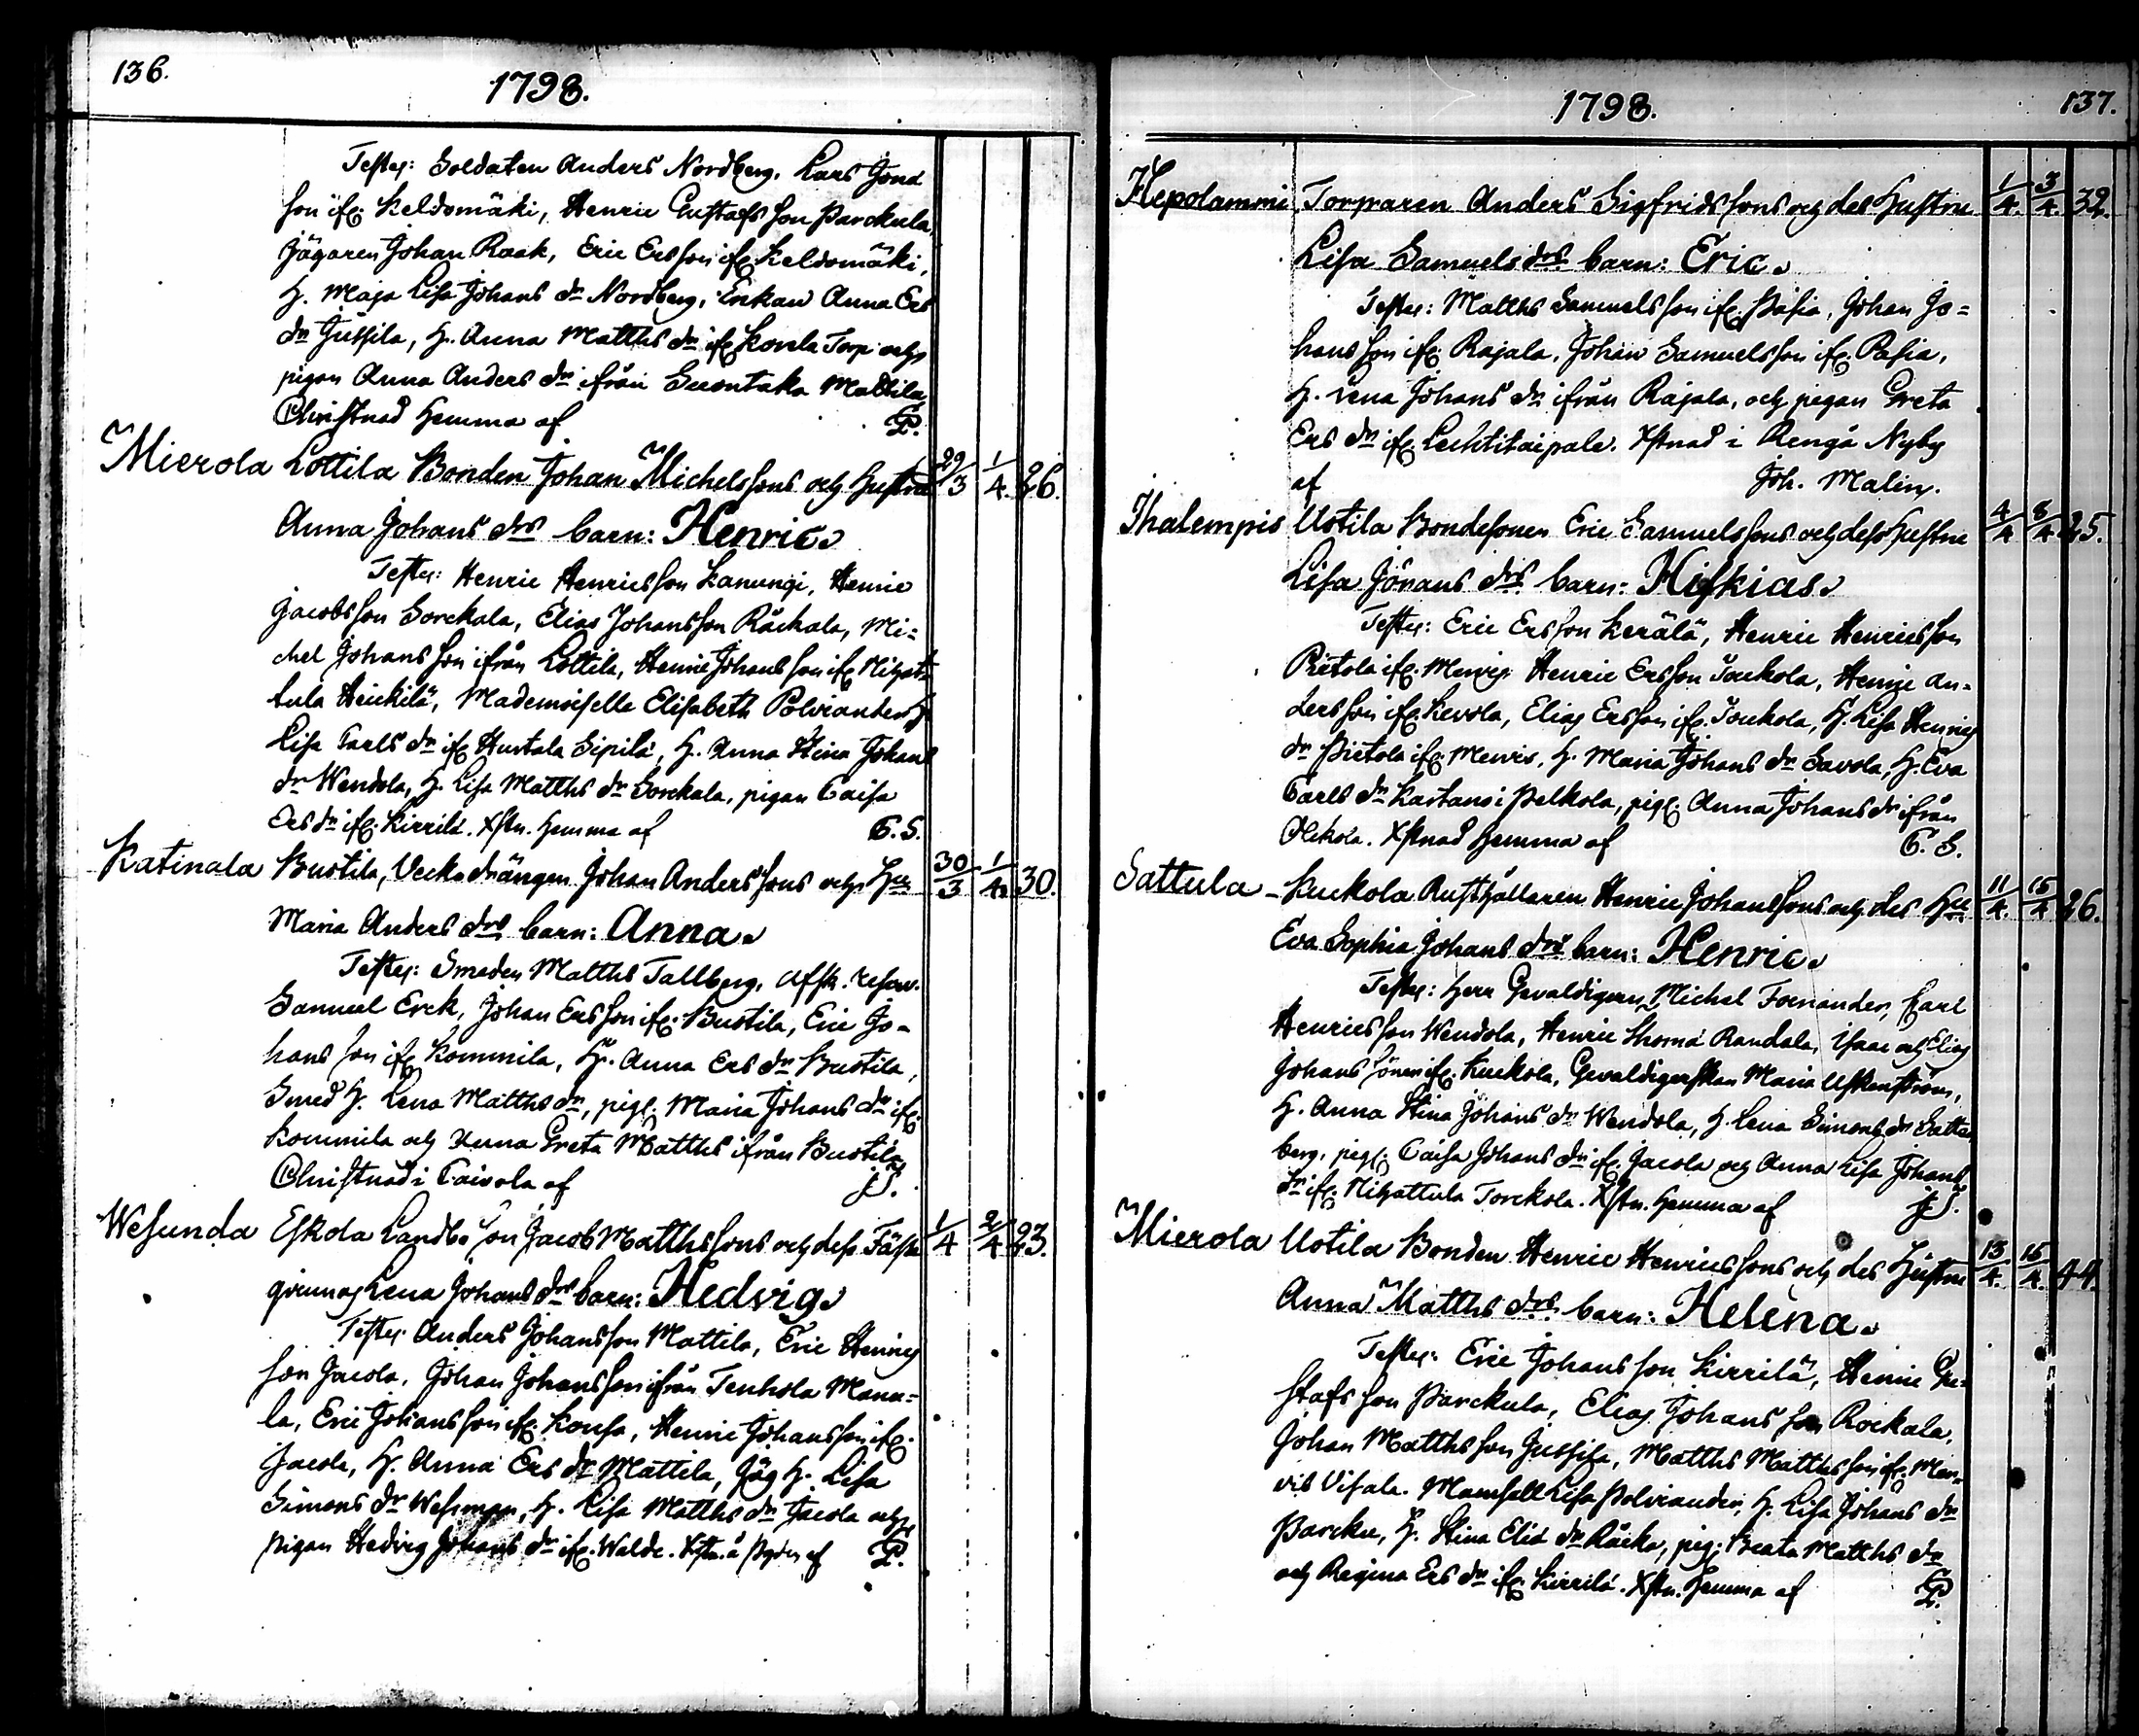 136.
1798.
Testes: Soldaten Anders Nordberg, Lars Jona
son ifr. Keldomäki, Henric Gustafs son Parckula,
Jägaren Johan Rask, Eric Ersson ifr. Keldomäki,
H. Maja Lisa Johans dr Nordberg, Enkan Anna Ers
dr Jussila, H. Anna Matths dr ifr. Torp och
pigan Anna Anders dr ifrån Suontaka Mattila
Christnad hemma af
Mierola Lottila Bonden Johan Michelssons och Hustru 29/3 1/4. 26.
Anna Johans drs barn: Henric.
Testes: Henric Henricsson Kanungi, Henric
Jacobsson Sorckala, Elias Johansson Råckala, Mi=
chel Johans son ifrån Lottila, Henric Johansson ifr. Nihat=
tula Heickilä, Mademoiselle Elisabeth Polviander, H.
Lisa Carls dr ifr. Hurtala Sipilä, H. Anna Stina Johans
dr Wendola, H. Lisa Matths dr Sorckala, pigan Caisa
Ers dr ifr. Kirrilä. Xstn. hemma af C. S.
Katinala Bustila, Veckodrängen Johan Anderssons och Hu 30/3 1/4. 30.
Maria Anders drs barn: Anna.
Testes: Smeden Matths Tallberg, Afsk.
Samuel Erck, Johan Ersson ifr. Bustila, Eric Jo=
hans son ifr. Kommila, H. Anna Ers dr Bustila,
Smed H. Lena Matths dr, pigs. Maria Johans dr ifr.
Kommila och Anna Greta Matths ifrån Bustila
Christnad i Taivola af J.S.
Wesunda Eskola Landbo son Jacob Matthssons och dess Fäste 1/4 2/4 23.
qvinnas Lena Johans drs barn: Hedvig.
Testes: Anders Johansson Mattila, Eric Henrics
son Jacola, Johan Johansson ifrån Tenhola Manu=
la, Eric Johansson ifr. Konsa, Henric Johansson ifr.
Jacola, H. Anna Ers dr Mattila, Jäg. H. Lisa
Simons dr Wessman, H. Lisa Matths dr Jacola och
Pigan Hedvig Johans dr ifr. Walde. Xstn. å af
1798.
137.
Hepolammi Torparen Anders Sigfridssons och des Hustru 1/4. 3/4. 32.
Lisa Samuels drs barn: Eric.
Testes: Matths Samuelsson ifr. Pasia, Johan Jo=
hans son ifr. Rajala, Johan Samuelsson ifr. Pasia,
H. Lena Johans dr ifrån Rajala, och pigan Greta
Ers dr ifr. Lechtitaipale. Xstnad i Rengå Nyby
af Joh. Malin.
Ihalempis Uotila Bondesonen Eric Samuelssons och dess Hustru 4/4 8/4 25.
Lisa Jörans drs barn: Hiskias.
Testes: Eric Ersson Kerälä, Henric Henricsson
Pietola ifr. Mervis, Henric Ersson Jouckola, Henric An=
dersson ifr. Kevola, Elias Ersson ifr. Jouckola, H. Lisa Henrics
dr Pietola ifr. Mervis, H. Maria Johans dr Savola, H. Eva
Carls dr Kartano i Pelkola, pigs. Anna Johans dr ifrån
Alikola. Xstnad hemma af C. S.
Sattula - Kuckola Rusthållaren Henric Johanssons och des Hu 11/4. 15/4 26.
Eva Sophia Johans drs barn: Henric.
Testes: Herr Gevaldigern Michel Fornander, Carl
Henricsson Wendola, Henric Thoma Randala, Isaac och Elias
Johans söner ifr. Kuckola, Gevaldigerskan Maria
H. Anna Stina Johans dr Wendola, H. Lena Simons dr Sattel
berg, pigs. Caisa Johans dr ifr. Jacola och Anna Lisa Johans
dr ifr. Nihattula Torckola. Xstn. hemma af J.S.
Mierola Uotila Bonden Henric Henricssons och des Hustru 13/4. 15/4. 44.
Anna Matths drs barn: Helena.
Testes: Eric Johans son Kirrilä, Henric Gu=
stafs son Parckula, Elias Johans son Rockala,
Johan Matths son Jussila, Matths Matthsson ifr. Mer=
vis Visala. Mamsell Lisa Polviander, H. Lisa Johans dr
Parcku, H. Stina Elia dr Råcka, pigs. Beata Matths dr
och Regina Ers dr ifr. Kirrilä. Xstn. hemma af